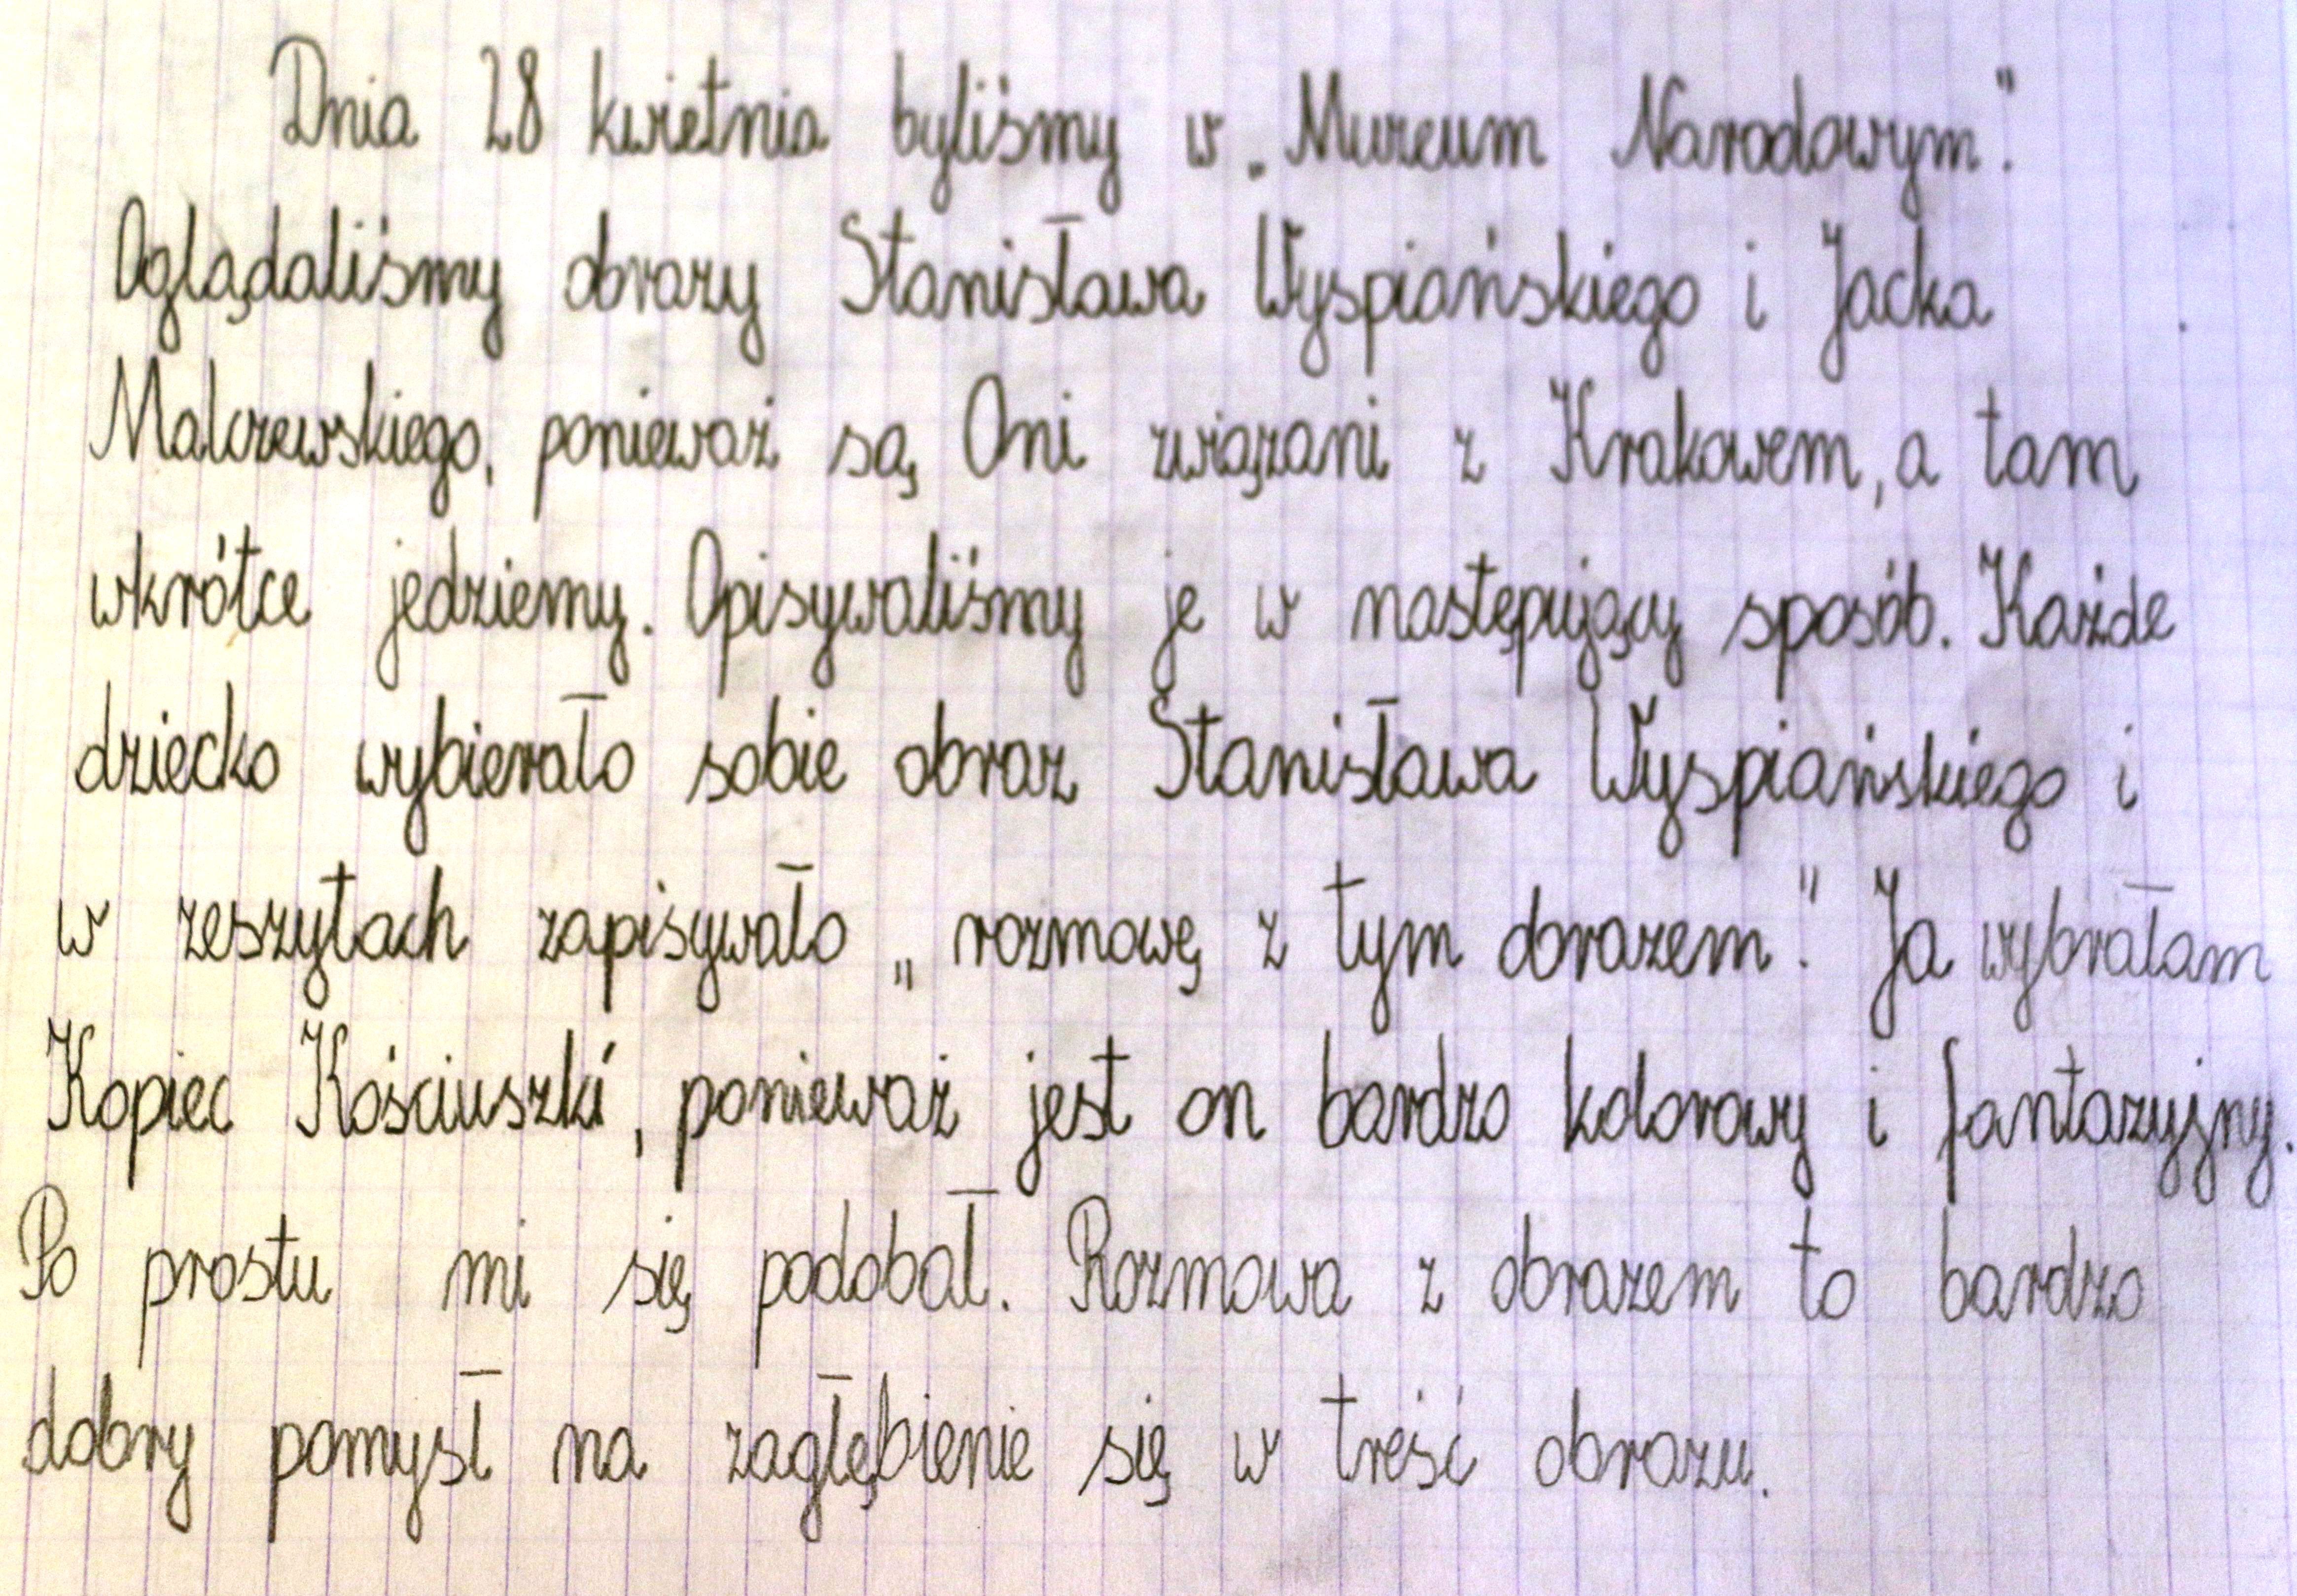 Dnia 28 kwietnia byliśmy w „Muzeum Narodowym".
Oglądaliśmy obrazy Stanisława Wyspiańskiego i Jacka
Malczewskiego, ponieważ są Oni związani z Krakowem, a tam
wkrótce jedziemy. Opisywaliśmy je w następujący sposób. Każde
dziecko wybierało sobie obraz Stanisława Wyspiańskiego i
w zeszytach zapisywało „rozmowę z tym obrazem". Ja wybrałam
Kopiec Kościuszki, ponieważ jest on bardzo kolorowy i fantazyjny.
Po prostu mi się podobał. Rozmowa z obrazem to bardzo
dobry pomysł na zagłębienie się w treść obrazu.